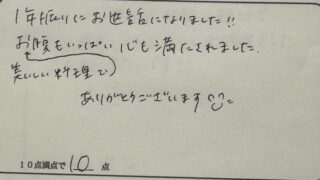 1年振りにお世話になりました!!
お腹もいっぱい心も満たされました。
美しい料理で
ありがとうございます
10点満点で 10 点